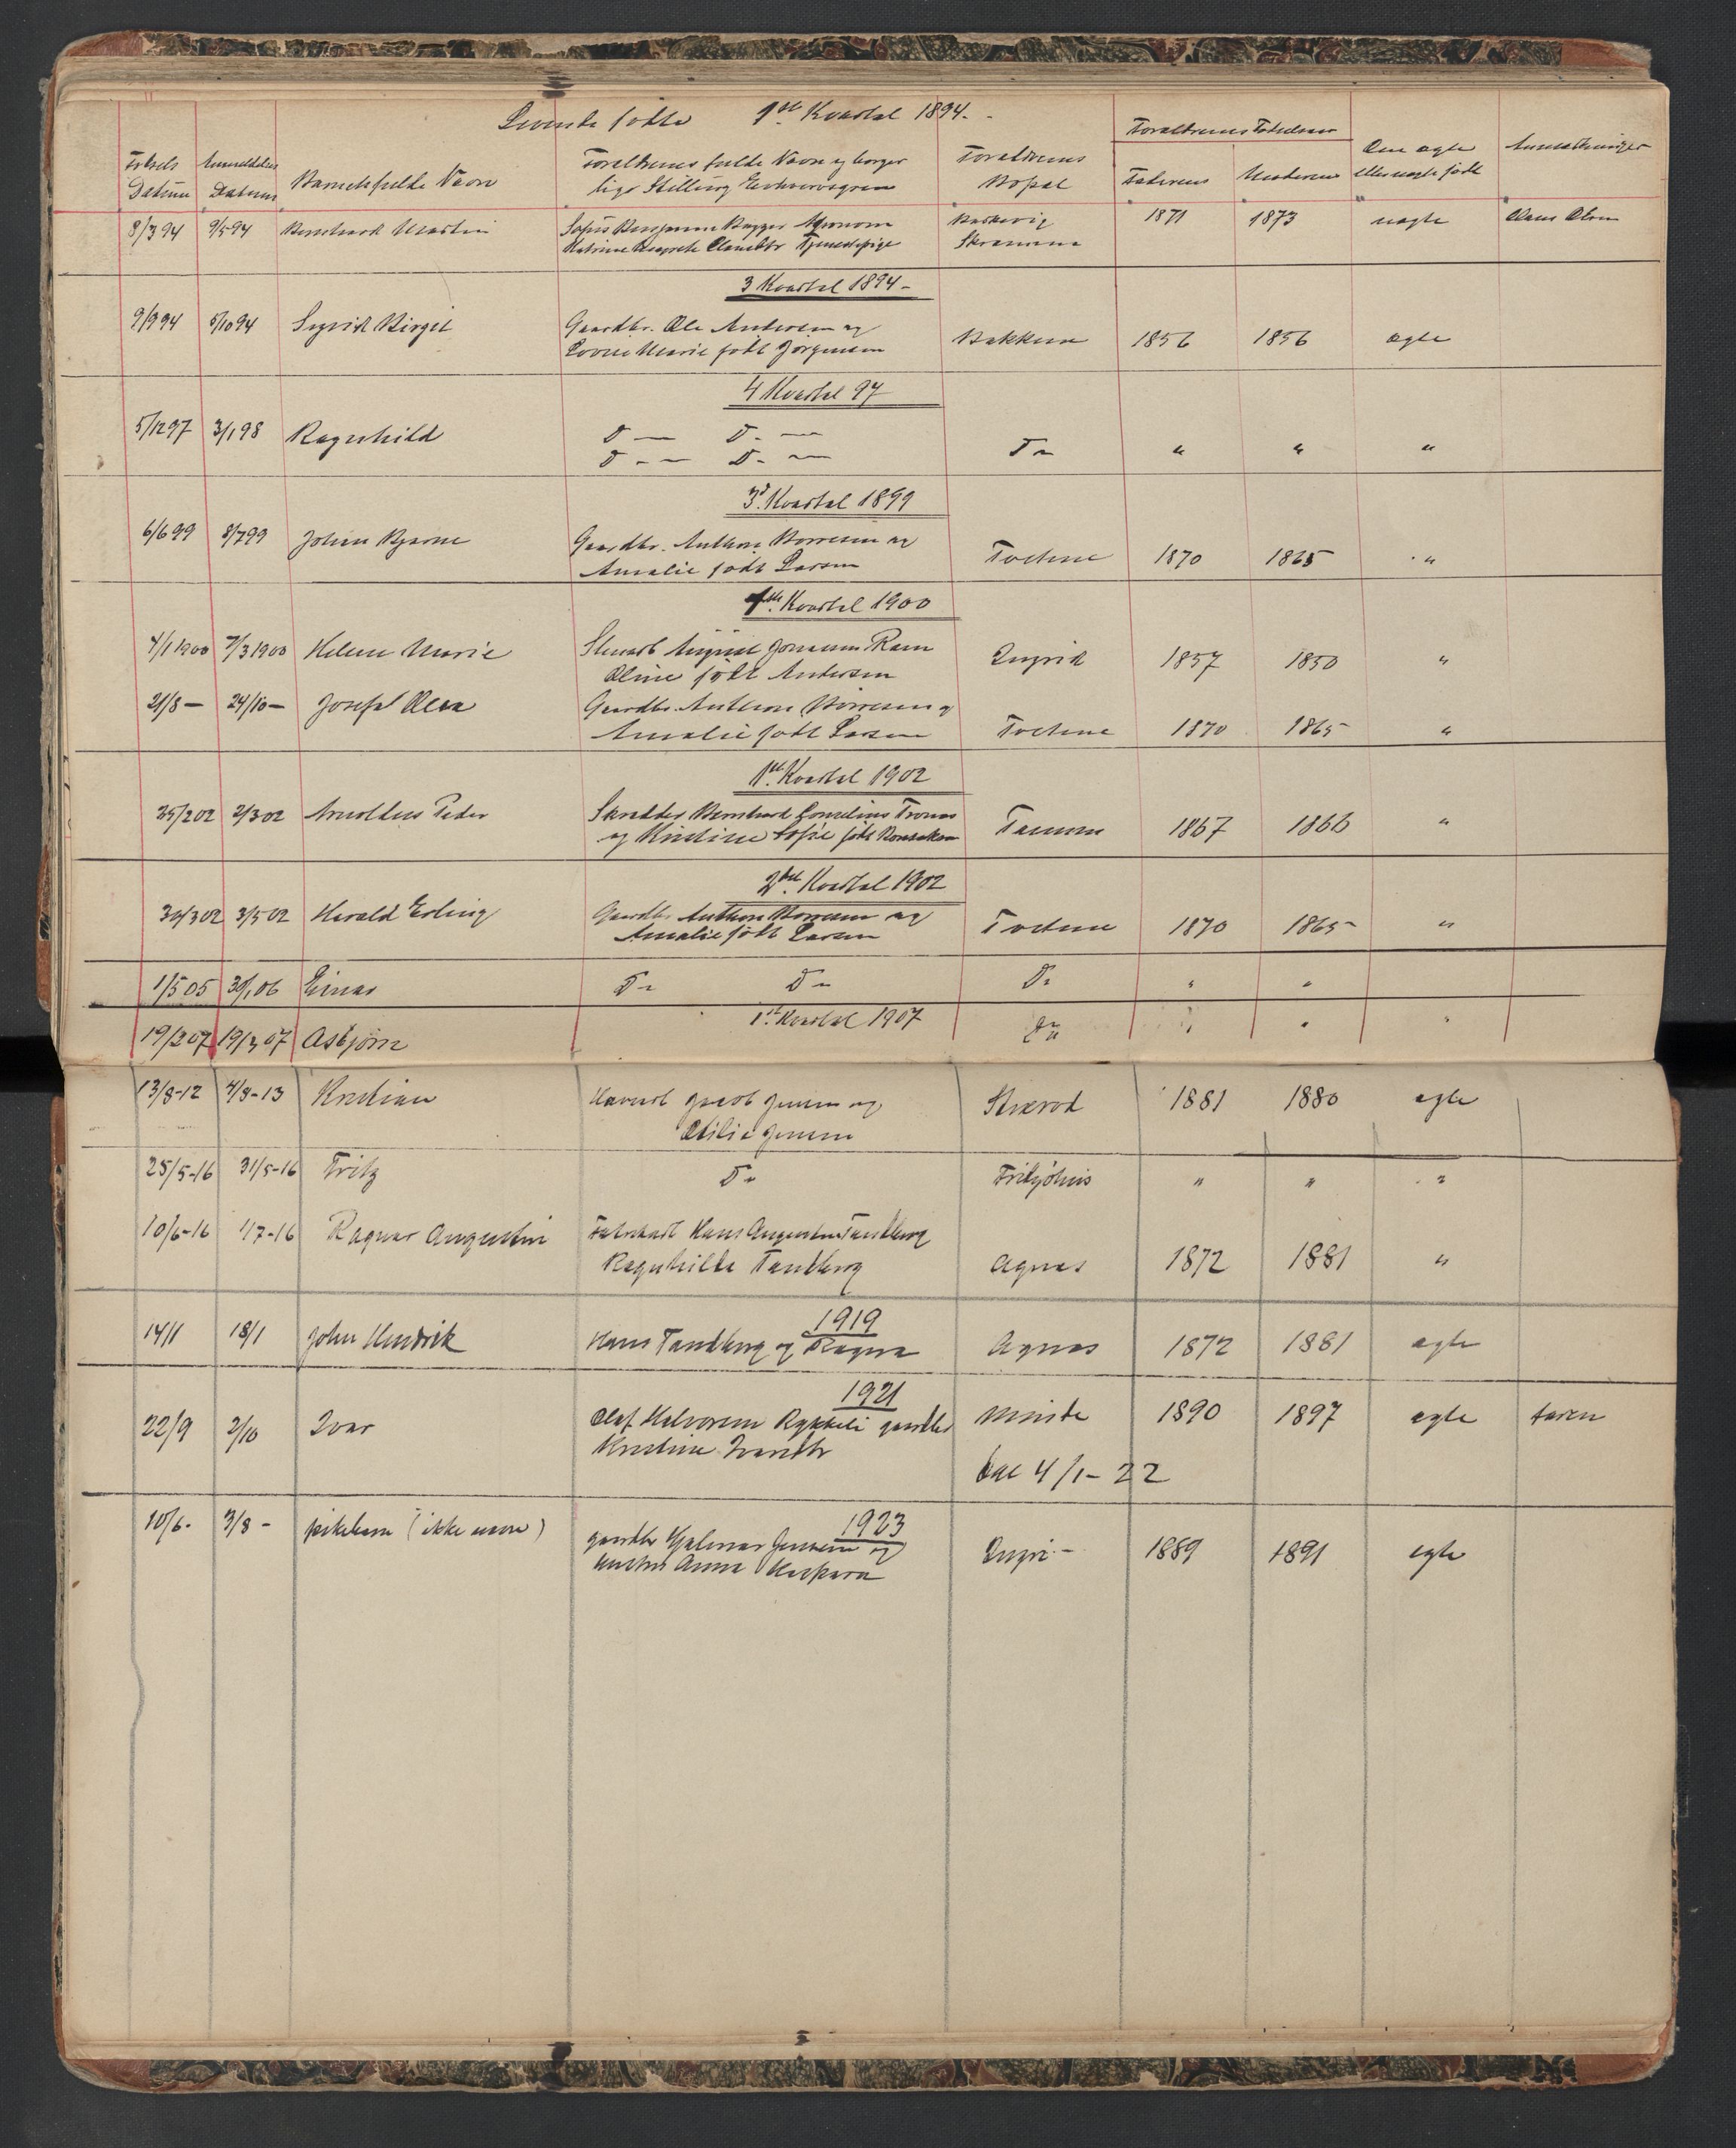 Levende fødte 1ste Kvartal 1894.
Fødsels Datum Anmeldelses Datum Barnets fulde Navn Forældrenes fulde Navn og borger lige Stilling Erhvervsgren Forældrenes Bopæl Forældrenes Fødselsaar Faderens Moderens Om ægte eller uægte født Anmærkninger
8/3 94 9/5 94 Bernhard Martin Agronom 1871 1873 uægte Claus Olsen
Katrine Tjenestepige
3 Kvartal 1894
9/9 94 5/10 94 Sigrid Birgit Gaardbr. Ole Andersen og Bakken 1856 1856 ægte
Marie født Jørgensen
4 Kvartal 97
5/12 97 3/1 98 Ragnhild D— D.— D— " " "
D-— D.—
3d. Kvartal 1899
6/6 99 8/7 99 Johan Bjarne Gaardbr. Anthon Borresen og Tortene 1870 1865 "
Amalie født Larsen
1ste. Kvartal 1900
4/1 1900 7/3 1900 Helene Marie August 1857 1850 "
Oline født Andersen
21/8— 24/10— Josef Olea Gaardbr. Anthon Borresen og Tortene 1870 1865 "
Amalie født Larsen
1ste. Kvartal 1902
25/2 02 2/3 02 Arnoldus Peder Skrædder Bernhard Cornelius 1867 1866 "
og Kristine Sofie født
2det. Kvartal 1902
30/3 02 3/5 02 Harald Erling Gaardbr. Anthon Borresen og Tortene 1870 1865 "
Amalie født Larsen
1/5 05 30/1 06 Einar D— D— D— " "
1st. Kvartal 1907
19/2 07 19/3 07 Asbjørn Do " " "
13/8-12 4/8-13 Kristian Jensen og 1881 1880 ægte
Otilie Jensen
25/5-16 31/5-16 Fritz D— Fritjøhus " " "
10/6-16 1/7-16 Ragnar Augustin Hans Augustin Tandberg
Ragnhilda Tandberg Agnes 1872 1881 "
1919
14/1 18/1 John Hendrik Hans Tandberg og Ragna Agnes 1872 1881 ægte
1921
22/9 2/10 Ivar Olaf Halvorsen Rykkeli gaardbr Minde 1890 1897 ægte faren
Kristine
4/1-22
1923
10/6- 3/8- pikebarn (ikke navn) gaardbr Hjalmar Jensen og 1889 1891 ægte
hustru Anna